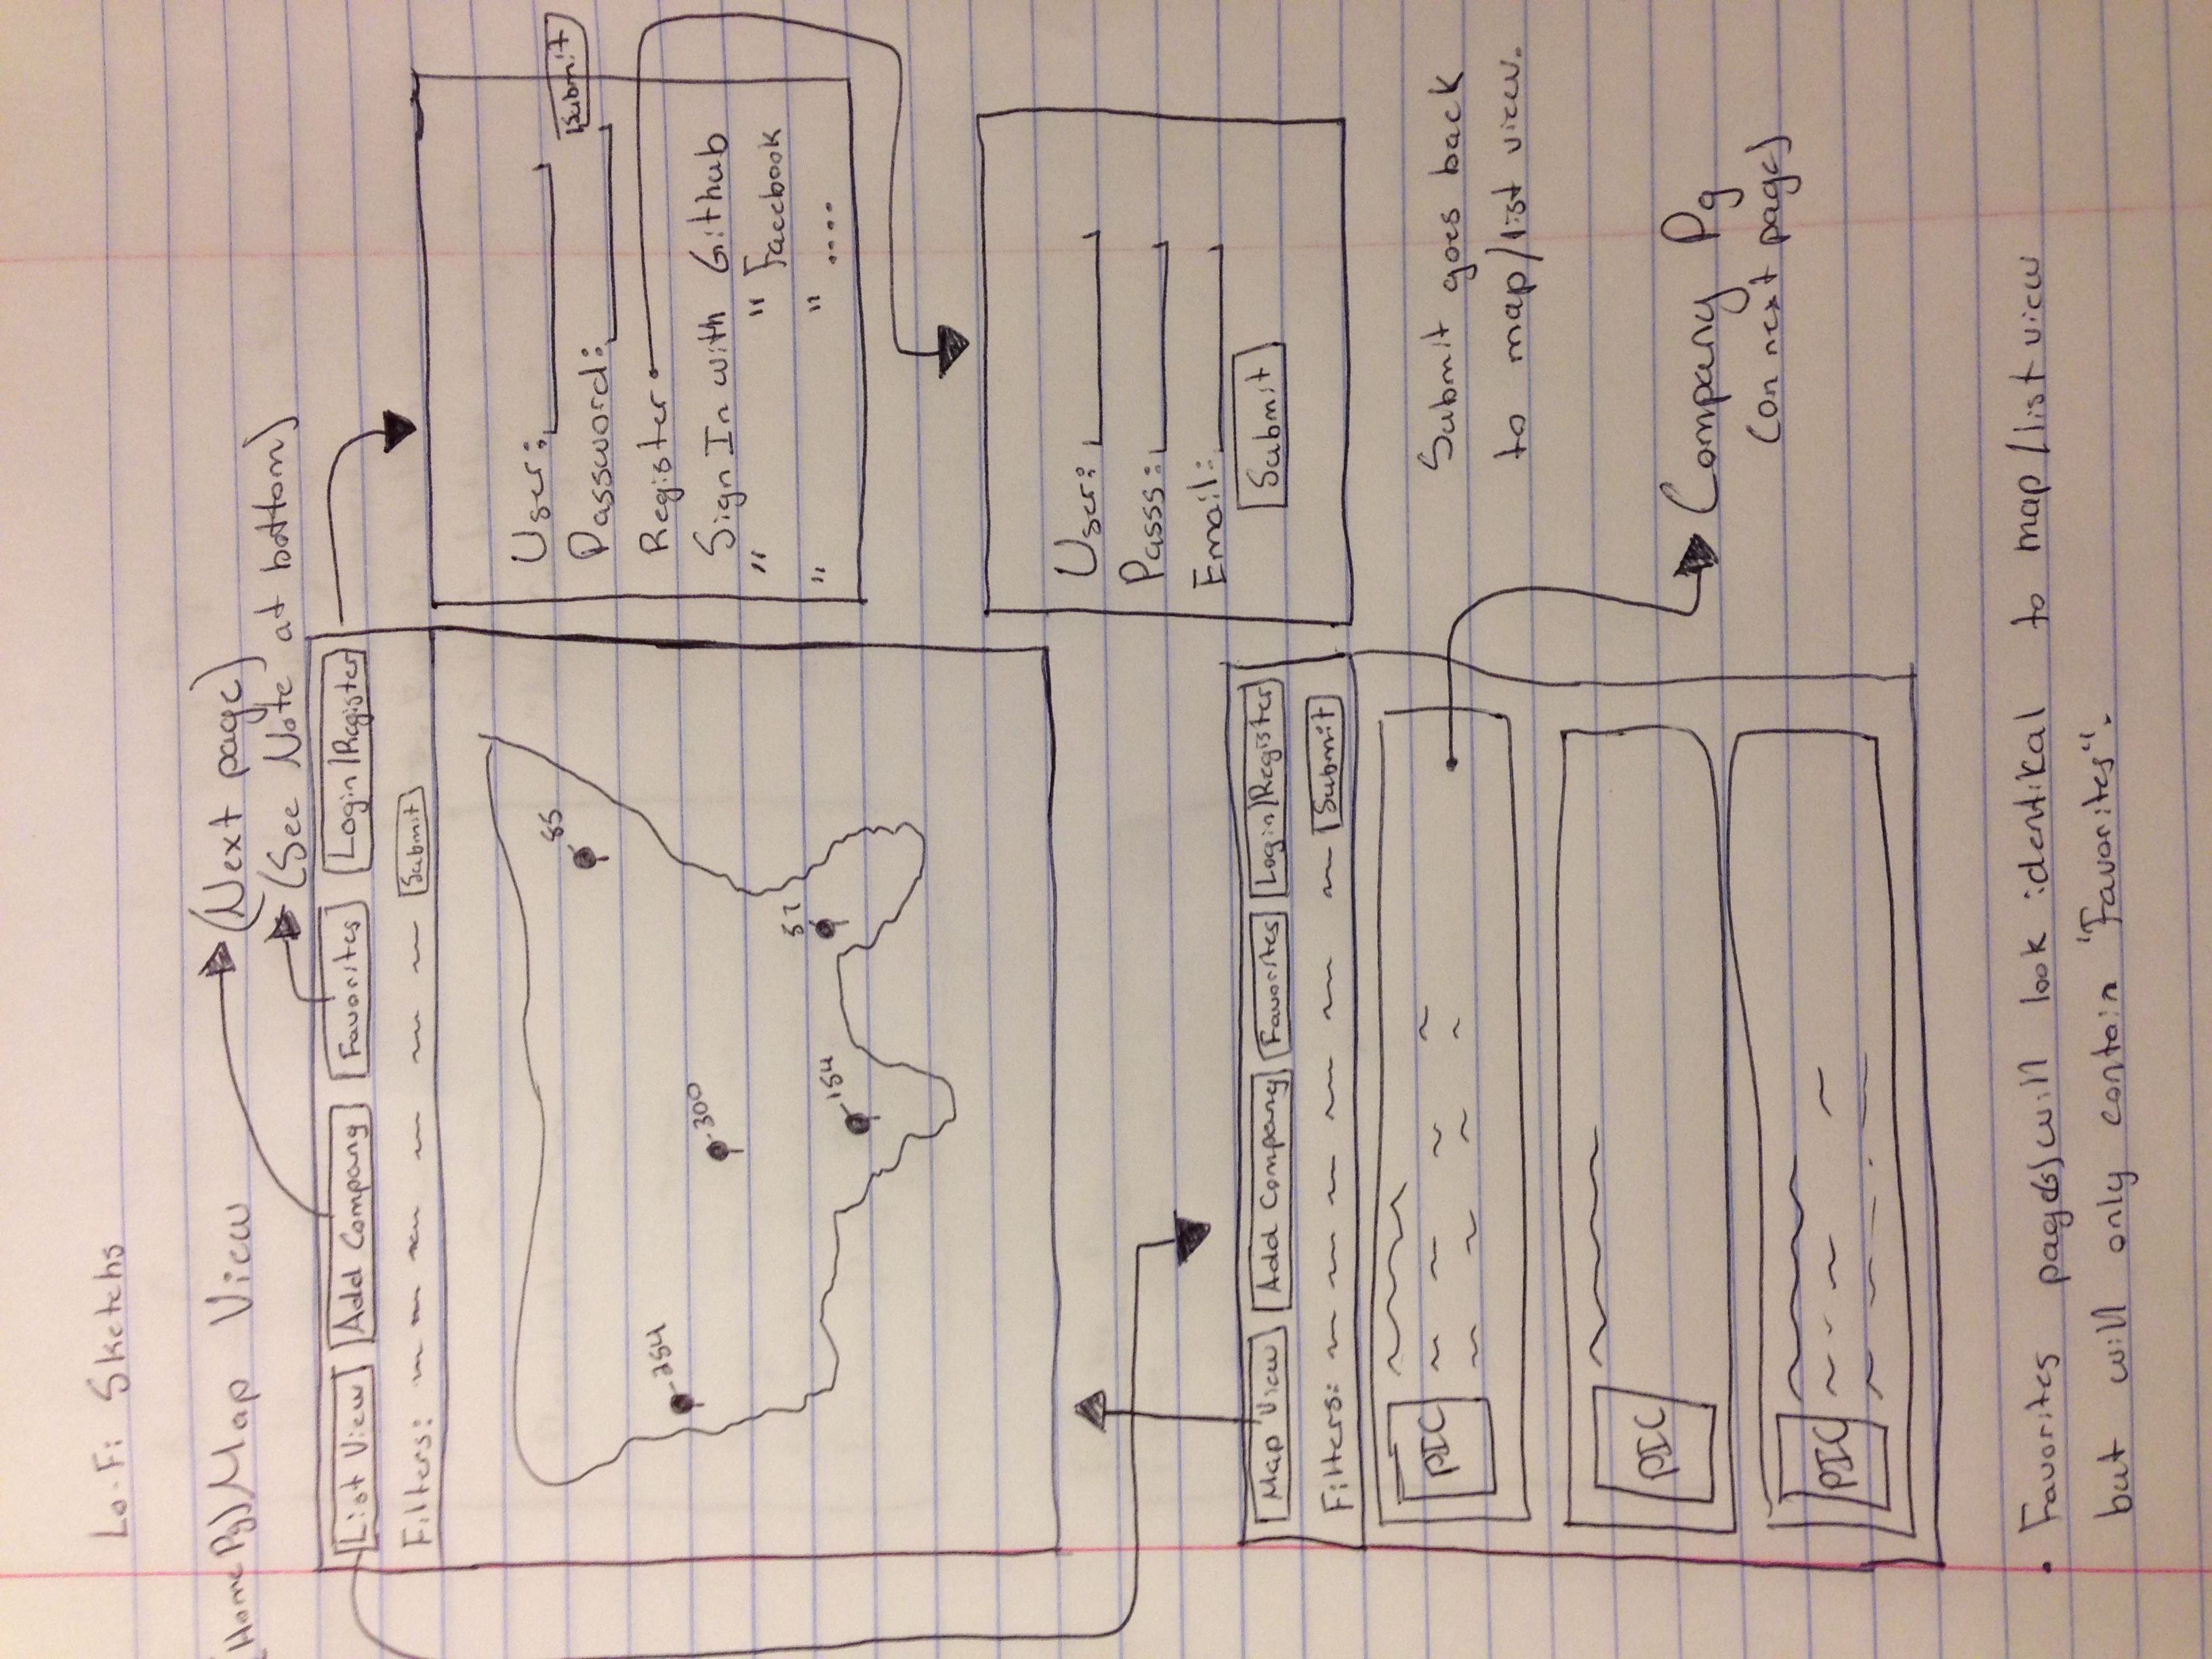 Lo-Fi Sketchs
(Home Pg) Map View
(Next page)
(See Note at bottom)
List View Add Company Favorites Login/Register
Filters: Submit
85
254
300
57
154
User:
Password: Submit
Register
Sign In with Github
" " Facebook
" " ....
User:
Passs:
Email:
Submit
Map View Add Company Favorites Login/Register
Filters: Submit
PIC
PIC
PIC
Submit goes back
to map/list view.
Company Pg
(on next page)
• Favorites page(s) will look identikal to map/list view
but will only contain "Favorites".